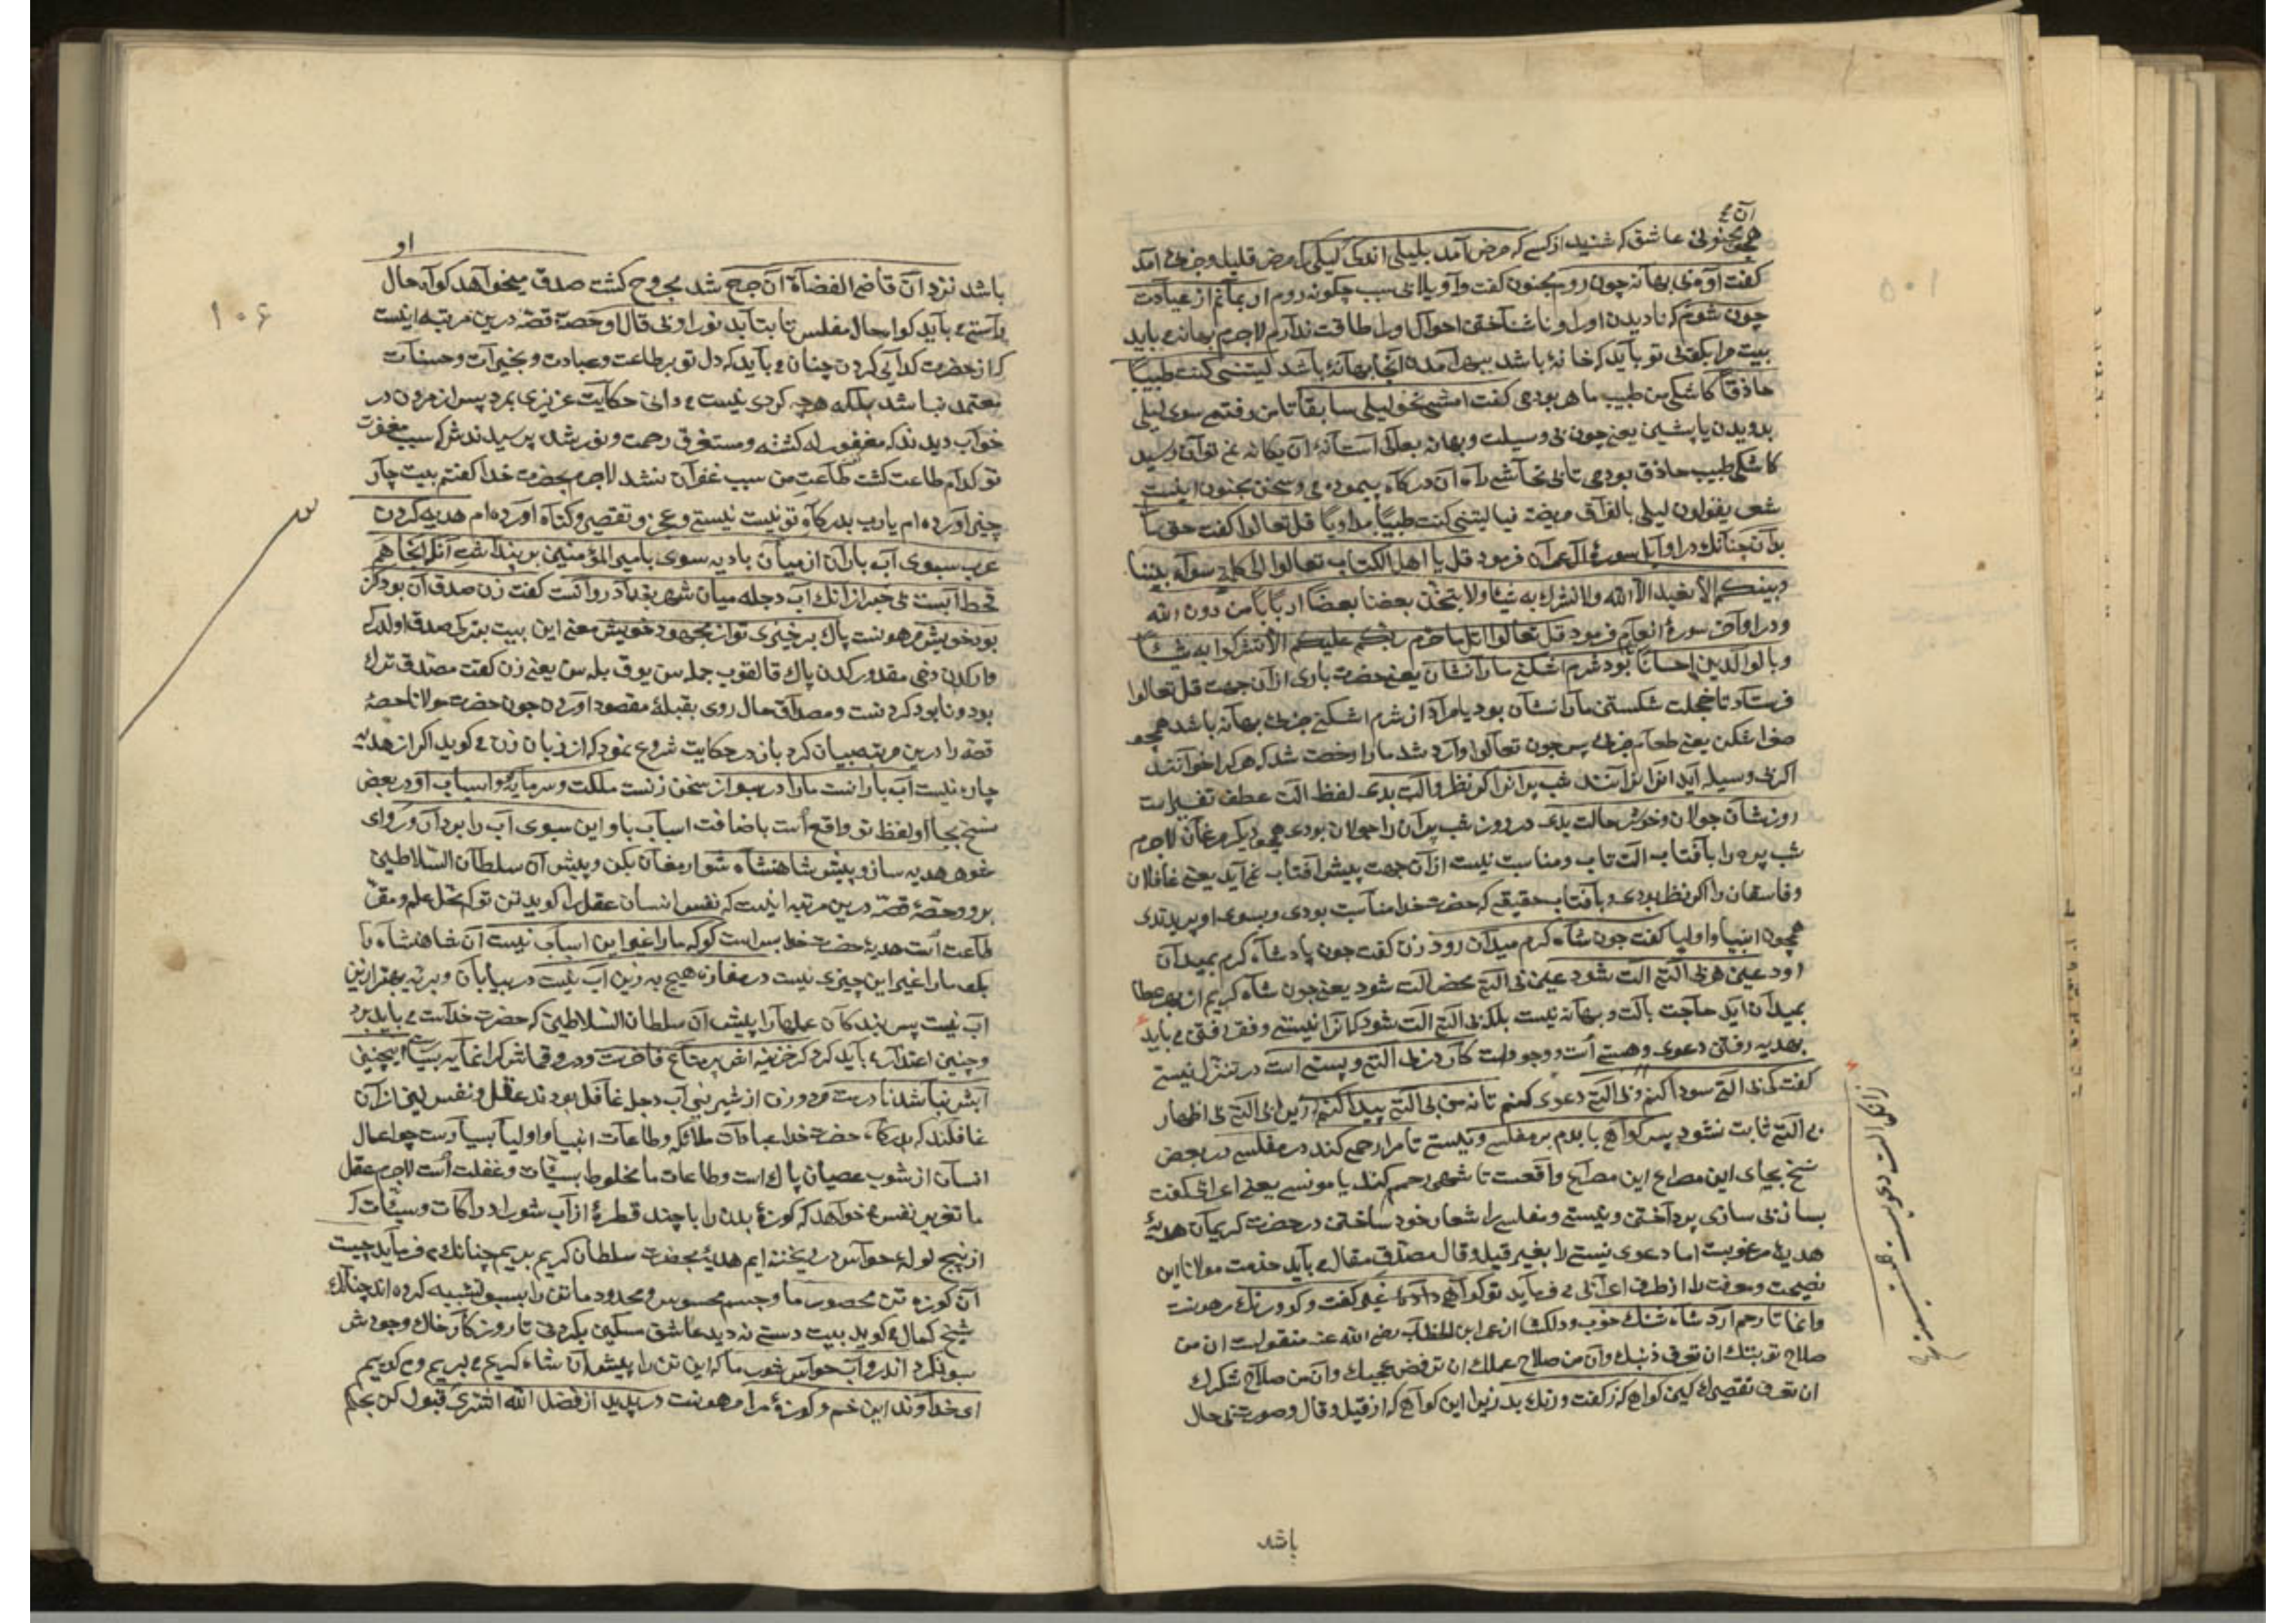 آن
همچو مجنونی عاشق که شنید از کسی که مرض آمد بلیلی اندک لیلی را مرض قلیل و جزئی آمد
کفت آوه بی بهانه چون روم مجنون کفت واویلا بی سبب چکونه روم او بمانم از عیادت
چون شوم که نادیدن او را و ناشناختن احوال او را طاقت ندارم لاجرم بهانه باید
بیت مرا بکفتی تو باید که خانه باشد بهر آمدن آنجا بهانه باشد لیتنی کنت طبیبا
حاذقا کاشکی من طبیب ماهر بودمی کفت امشی نحو لیلی سابقا تا من رفتمی سوی لیلی
بدویدن یا پیشین یعنی چون بی وسیلت و بهانه بعالی آستانهٔ آن یکانه نمی توان رسید
کاشکی طبیب حاذق بودمی تا بی تحاشی راه آن درکاه پیمودمی و سخن مجنون اینست
شعر یقولون لیلی بالعراق مریضة فیا لیتنی کنت طبیبا مداویا قل تعالوا کفت حق ما را
بدان چنانک در اوایل سورهٔ آل عمران فرمود قل یا اهل الکتاب تعالوا الی کلمة سواء بیننا
وبینکم الا نعبد الا الله ولا نشرک به شیئا ولا یتخذ بعضنا بعضا اربابا من دون الله
و در اواخر سورهٔ انعام فرمود قل تعالوا اتل ما حرم ربکم علیکم الا تشرکوا به شیئا
وبالوالدین احسانا بود شرم اشکنی ما را نشان یعنی حضرت باری از آن جهت قل تعالوا
فرستاد تا خجلت شکستن ما را نشان بود یا مراد از شرم اشکنی جزئی بهانه باشد همچو
صفرا شکن یعنی طعام جزئی پس چون تعالوا وارد شد ما را رخصت شد که هر که را خوانند
اکر بی وسیله آید او را نرانند شب پران را کر نظر و آلت بدی لفظ آلت عطف تفسیر است
روزشان جولان و خوش حالت بدی در روز شب پران را جولان بودی همچو دیکر مرغان لاجرم
شب پره را بآفتاب آلت تاب و مناسبت نیست از آن جهت پیش آفتاب نمی آید یعنی غافلان
و فاسقان را اکر نظر بودی و بآفتاب حقیقی که حضرت خدا مناسبت بودی و بسوی او پریدندی
همچون انبیا و اولیا کفت چون شاه کرم میدان رود زن کفت چون پادشاه کرم بمیدان
رود عین هر بی آلتی آلت شود عین بی آلتی محض آلت شود یعنی چون شاه کریم از بهر عطا
بمیدان آید حاجت بآلت و بهانه نیست بلکه بی آلتی آلت شود زیرا نیستی و فقر رفتن می باید
بهدیه رفتن دعوی و هستی است و وجودست کار در بی آلتی و پستی است در تنزل نیستی
کفت کی بی آلتی سودا کنم و بی آلتی دعوی کنم تا نه من بی آلتی پیدا کنم زیرا بی آلتی بی اظهار
بی آلتی ثابت نشود پس کواهی بایدم بر مفلسی و نیستی تا مرا رحمی کند در مفلسی در بعض
نسخ بجای این مصراع این مصراع واقعست تا شهی رحم کند یا مونسی یعنی اعرابی کفت
بساز بی سازی پرداختن و نیستی و مفلسی را شعار خود ساختن در حضرت کریمان هدیهٔ
هدیهٔ مرغوبست اما دعوی نیستی را بغیر قیل و قال مصدق مقال می باید حضرت مولانا این
نصیحت و معرفت را از طرف اعرابی می فرماید تو کواهی داده غیر کفت و کو و رنک رهنت
وانما تا رحم آرد شاه شنک خوب و دلکشا از عمر ابن الخطاب رضی الله عنه منقولست ان من
صلاح توبتک ان تعرف ذنبک وان من صلاح عملک ان ترفض عجبک وان من صلاح شکرک
ان تعرف تقصیرک کین کواهی که ز کفت و رنک بد زیرا این کواهی که از قیل و قال و صورت بی حال
زانکه آلت دعویست و هستی است
باشد
او
۱۰۶
باشد نزد آن قاضی القضاة آن جرح شد مجروح کشت صدق میخواهد کواه حال
راستی می باید کواه حال مفلس تا بتابد نور او بی قال او حصهٔ قصه درین مرتبه اینست
که از حضرت کدایی کردن چنان می باید که دل تو بر طاعت و عبادت و بخیرات و حسنات
معتمد نباشد بلکه هر چه کردی نیست می دانی حکایت عزیزی بمرد پس از مردن در
خواب دیدند که مغفور له کشته و مستغرق رحمت و نور شده پرسیدندش که سبب مغفرت
تو کدام طاعت کشت کفت طاعت من سبب غفران نشد لاجرم بحضرت خدا کفتم بیت چار
چیز آورده ام یا رب بدرکاه تو نیست نیستی و عجز و تقصیر و کناه آورده ام هدیه کردن
عرب سبوی آب باران از میان بادیه سوی بامیر المؤمنین بر پنداشت آنکه آنجا هم
قحط آبست بی خبر از آنک آب دجله میان شهر بغداد روانست کفت زن صدق آن بود کز
بود خویش مرهونت پاک برخیزی تو از مجهود خویش معنی این بیت بترکی صدق اولدر که
وارکدن دخی مقدورکدن پاک قالقوب جمله سن یوق بله سن یعنی زن کفت مصدق ترک
بود و نابود کردنست و مصداق حال روی بقبلهٔ مقصود آوردن چون حضرت مولانا حصهٔ
قصه را درین مرتبه بیان کرد باز در حکایت شروع نمود که از زبان زن می کوید اکر از هدیه
چاره نیست آب بارانست ما را در سبو از سخن زنست ملکت و سرمایه و اسباب او در بعض
نسخ بجای او لفظ تو واقع است باضافت اسباب با و این سبوی آب را بردار و رو ای
شوهر هدیه ساز و پیش شاهنشاه شو ارمغان بکن و پیش آن سلطان السلاطین
برو و حصهٔ قصه درین مرتبه اینست که نفس انسان عقل را کوید تن تو که محل علم و مقر
طاعت است هدیهٔ حضرت خدا بس است کو که ما را غیر این اسباب نیست آن شاهنشاه را
بکو ما را غیر این چیزی نیست در مفازه هیچ به زین آب نیست در بیابان و بریه بهتر ازین
آب نیست پس بندکان عملها را پیش آن سلطان السلاطین که حضرت خداست می باید برد
و چنین اعتذار می باید کرد کر خزینه اش پر متاع فاخرست و در و قماش کرانمایه بسیار اینچنین
آبش نباشد نادرست مرد و زن از شیرینی آب دجله غافل بودند عقل و نفس نیز از آن
غافلند که بدرکاه حضرت خدا عبادات ملائکه و طاعات انبیا و اولیا بسیارست چو اعمال
انسان از شوب عصیان پاک است و طاعات ما مخلوط بسیئات و غفلت است لاجرم عقل
ما تغریر نفس می خواهد که کوزهٔ بدن را با چند قطرهٔ از آب شور ادراکات و سیئات که
از پنج لولهٔ حواس در ریخته ایم هدیهٔ بحضرت سلطان کریم بریم چنانک می فرماید چیست
آن کوزه تن محصور ما و جسم محسوس و محدود ما تن را بسبو تشبیه کرده اند چنانک
شیخ کمال می کوید بیت دستی ندید عاشق مسکین بکردنی تا روزکار خاک وجودش
سبو نکرد اندر و آب حواس شور ما که این تن را پیش آن شاه کریم می بریم و می کوییم
ای خداوند این خم و کوزهٔ مرا مرهونت در پذیر از فضل الله اشتری قبول کن بحکم